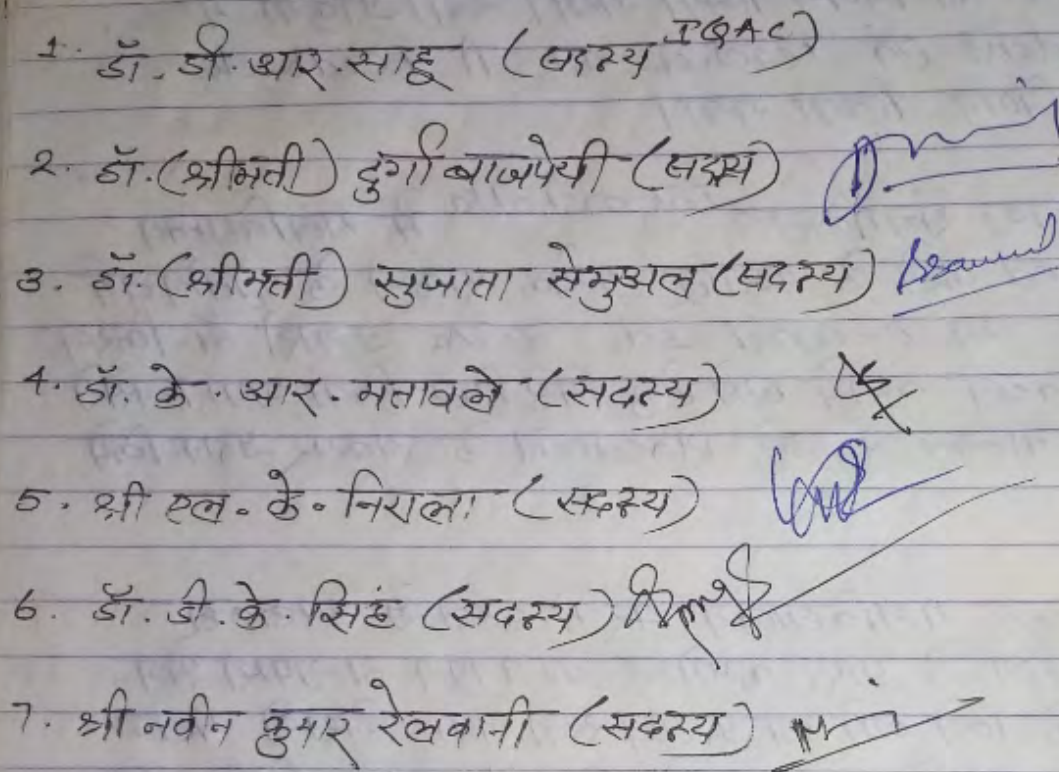 1. डॉ. डी. आर. साहू (सदस्य IQAC)
2. डॉ. (श्रीमती) दुर्गा बाजपेयी (सदस्य)
3. डॉ. (श्रीमती) सुजाता सेमुअल (सदस्य)
4. डॉ. के. आर. मतावले (सदस्य)
5. श्री एल. के. निराला (सदस्य)
6. डॉ. डी. के. सिंह (सदस्य)
7. श्री नवीन कुमार रेलवानी (सदस्य)